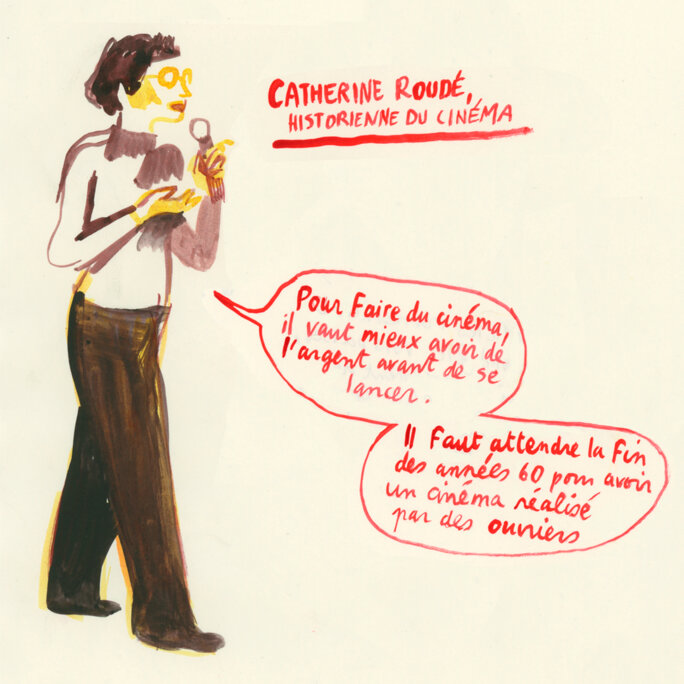 CATHERINE ROUDÉ,
HISTORIENNE DU CINÉMA
Pour Faire du cinéma,
il vaut mieux avoir de
l'argent avant de se
lancer.
Il Faut attendre la Fin
des années 60 pour avoir
un cinéma réalisé
par des ouvriers